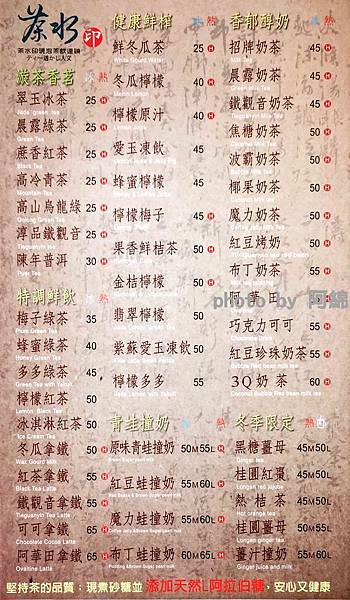 茶水 印
茶水印現泡茶飲連鎖
ティー透かし人文
嚴茶香茗 冷 熱
翠玉冰茶 25 H
Jade green tea
晨露綠茶 25 H
Green Tea
蔗香紅茶 25 H
Black Tea
高冷青茶 25 H
Mountain Tea
高山烏龍綠 25 H
Oolong Green Tea
淳品鐵觀音 25 H
Tieguanyin tea
陳年普洱 30 H
Puer Tea
特調鮮飲 冷 熱
梅子綠茶 35
Plum Green Tea
蜂蜜綠茶 40 H
Honey Green Tea
多多綠茶 45
Green Tea with Yakult
檸檬紅茶 50
Lemon Black Tea
冰淇淋紅茶 50
Ice Cream Tea
冬瓜拿鐵 50
Wax Gourd Milk
紅茶拿鐵 55 H
Black Tea Latte
鐵觀音拿鐵 55 H
Tieguanyin Tea Latte
可可拿鐵 65 H
Chocolate Cocoa Latte
阿華田拿鐵 65 H
Ovaltine Latte
健康鮮榨 冷 熱
鮮冬瓜茶 25 H
White Gourd Water
冬瓜檸檬 40 H
Melon Lemon
檸檬原汁 40 H
愛玉凍飲 45
蜂蜜檸檬 45 H
檸檬梅子 45 H
果香鮮桔茶 50 H
金桔檸檬 50 H
翡翠檸檬 50
Jade Lemon Green Tea
紫蘇愛玉凍飲 50
檸檬多多 55
青蛙撞奶 冷 熱
原味青蛙撞奶 50M 55L H
紅豆青蛙撞奶 50M 55L H
Red Beans & Brown Sugar pearl milk
魔力青蛙撞奶 55M 60L H
布丁青蛙撞奶 55M 60L H
Pudding & Brown Sugar pearl milk
香郁醇奶 冷 熱
招牌奶茶 45 H
Milk Tea
晨露奶茶 45 H
Green Milk Tea
鐵觀音奶茶 45 H
Tieguanyin Milk Tea
焦糖奶茶 50 H
Caramel Milk Tea
波霸奶茶 50 H
Bubble Milk Tea
椰果奶茶 50 H
Coconut Milk Tea
魔力奶茶 50 H
Jelly Milk Tea
紅豆烤奶 50 H
布丁奶茶 55 H
Pudding Milk Tea
阿華田 H
巧克力可可 55 H
Chocolate Drink
紅豆珍珠奶茶 55 H
3Q奶茶 60 H
Coconut Bubble Red bean milk tea
冬季限定 熱
黑糖薑母 45M 50L
Ginger tea
桂圓紅棗 45M 50L
Longan red Jujube
熱桔茶 45M 50L
Hot orange tea
桂圓薑母 50M 55L
Longan ginger tea
薑汁撞奶 50M 55L
Ginger juice and milk
photo by 阿綿
堅持茶的品質:現煮砂糖並添加天然L阿拉伯糖,安心又健康